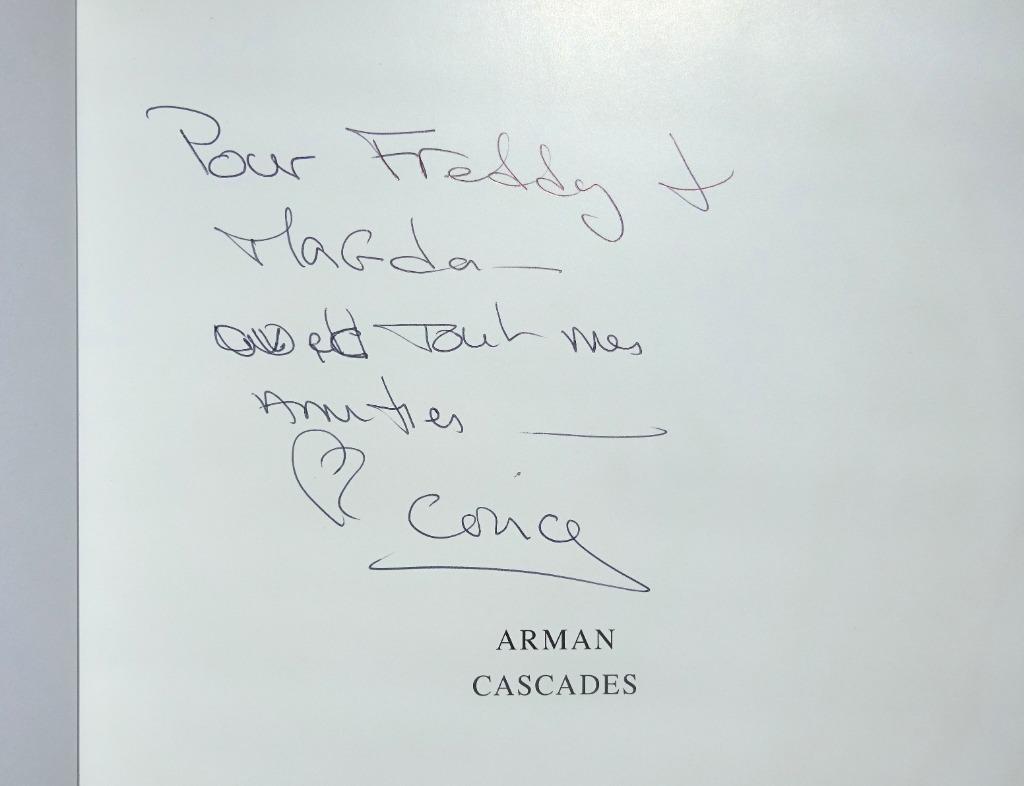 Pour Freddy +
Magda —
avec tout mes
Amities —
Corice
ARMAN
CASCADES